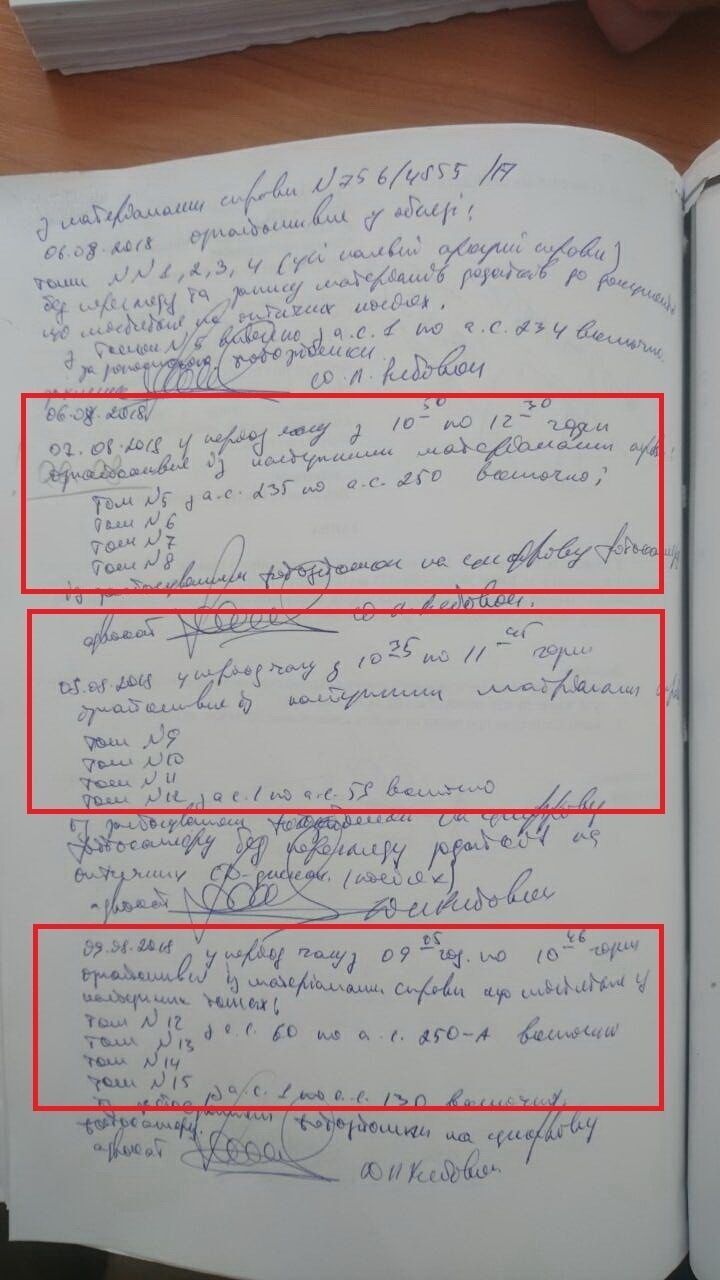 з матеріалами справи №756/4855/17
06.08.2018 ознайомився у обсязі:
томи №№ 1, 2, 3, 4 (усі наявні аркуші справи)
без перегляду та запису матеріалів додатків до
що містяться на оптичних носіях.
з томом №5 з а.с. 1 по а.с. 234 включно
фотозйомки
06.08.2018
07.08.2018 у період часу з 10 30 по 12 30 годин
ознайомився із наступними матеріалами
том №5 з а.с. 235 по а.с. 250 включно;
том №6
том №7
том №8
із застосуванням фотозйомки на цифрову
адвокат
08.2018 у період часу з 10 по 11 45 годин
ознайомився із наступними матеріалами
том №9
том №10
том №11
том №12 з а.с. 1 по а.с. 59 включно
із застосуванням фотозйомки на цифрову
фотокамеру без перегляду додатків на
оптичних CD-дисках (носіях)
адвокат
09.08.2018 у період часу з 09 05 год. по 10 46 годин
ознайомився із матеріалами справи що містяться у
наступних томах:
том №12 з а.с. 60 по а.с. 250-А включно
том №13
том №14
том №15
з а.с. 1 по а.с. 130 включно,
фотозйомки на цифрову
фотокамеру.
адвокат